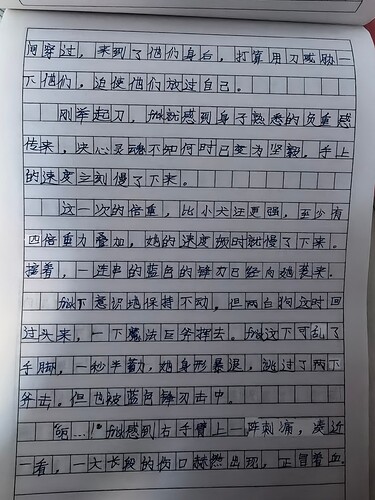 间穿过，来到了他们身后，打算用刀威胁一
下他们，迫使他们放过自己。
刚举起刀，她就感到身子熟悉的负重感
传来，决心灵魂不知何时已变为坚毅，手上
的速度立刻慢了下来。
这一次的倍重，比小犬还更强，至少有
四倍重力叠加，她的速度顿时就慢了下来。
接着，一连串的蓝色的锋刃已经向她袭来。
她下意识地保持不动，但两白狗这时回
过头来，一下魔法巨斧挥去。她这下可乱了
手脚，一秒半勤，她身形暴退，跳过了两下
斧击。但也被蓝色锋刃击中。
“呃…！”她感到右手臂上一阵刺痛，凑近
一看，一大长段的伤口赫然出现，正冒着血。